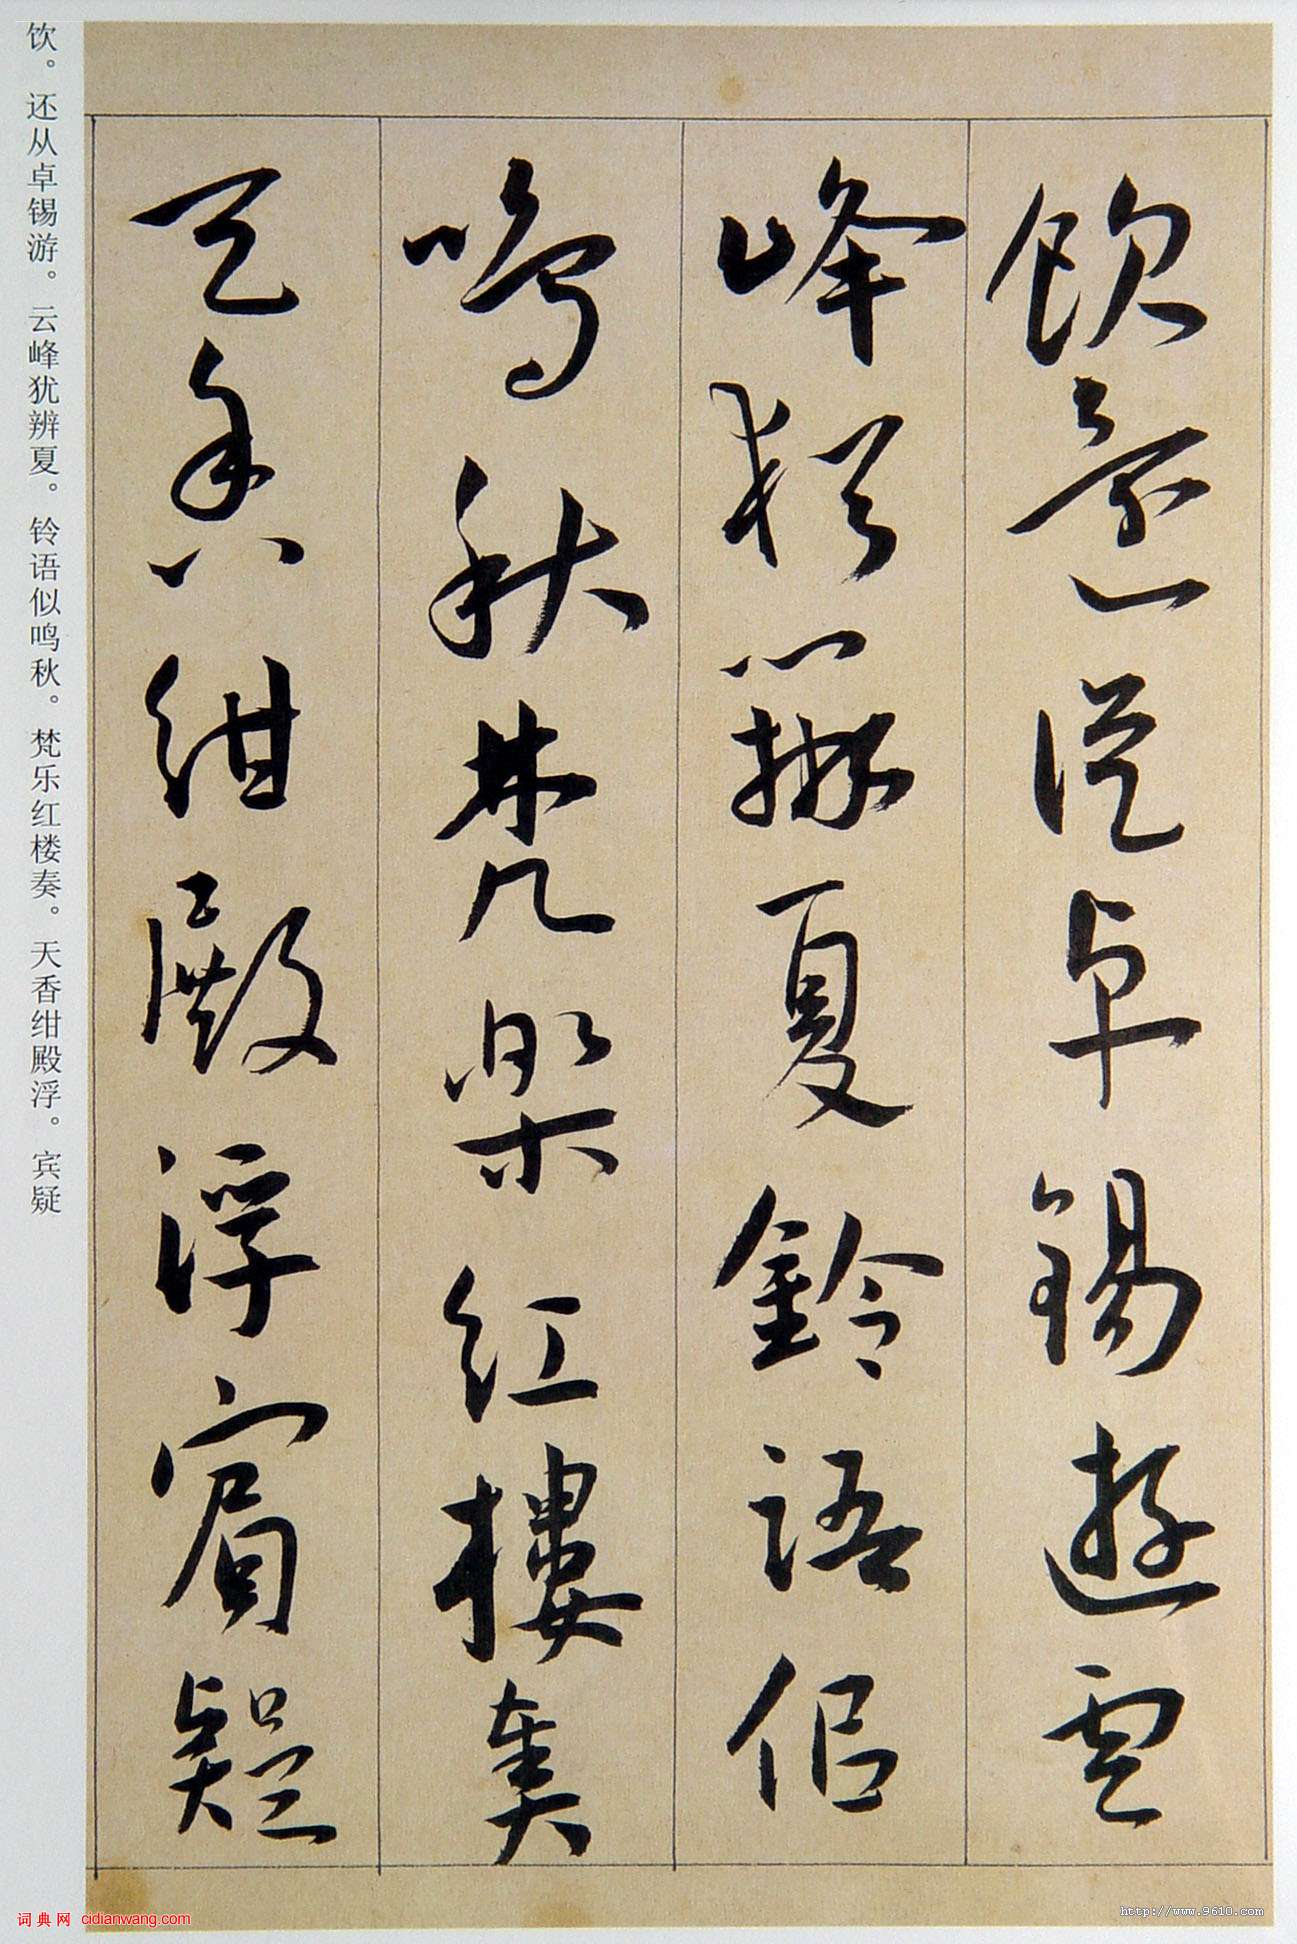 飲還從卓錫遊雲
峰猶辨夏鈴語似
鳴秋梵樂紅樓奏
天香紺殿浮賓疑
饮。还从卓锡游。云峰犹辨夏。铃语似鸣秋。梵乐红楼奏。天香绀殿浮。宾疑
词典网 cidianwang.com
http://www.9610.com